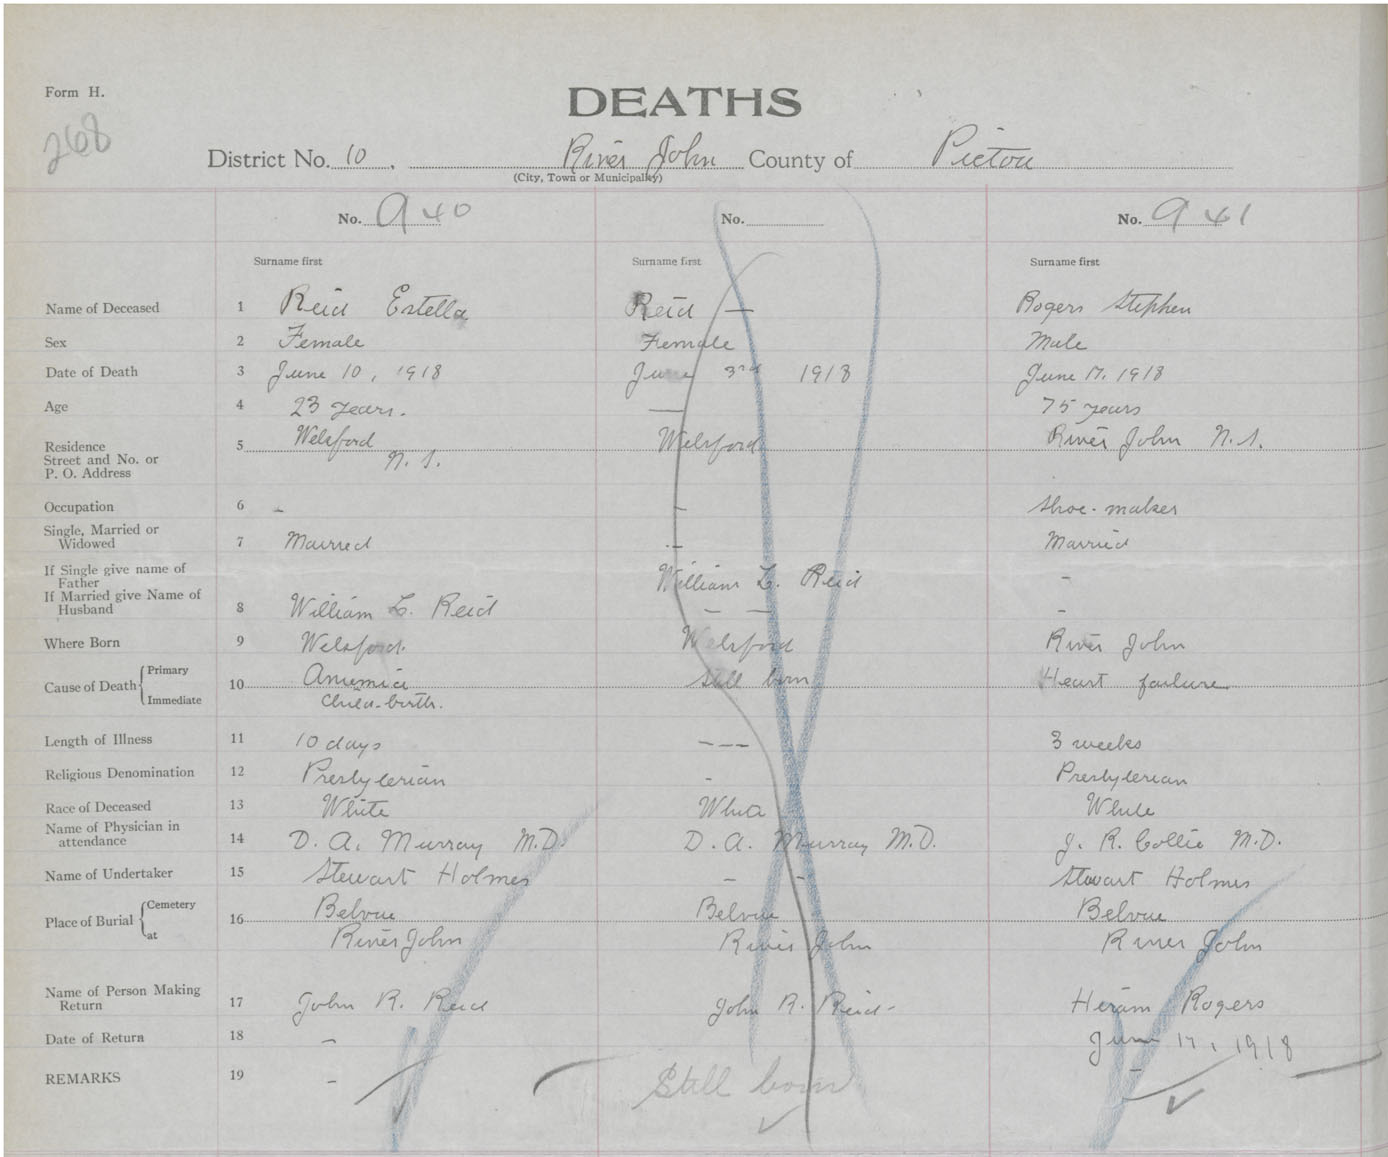 Form H.
DEATHS
268
District No. 10. River John County of Pictou
(City, Town or Municipality)
No. 940 No. No. 941
Surname first Surname first Surname first
Name of Deceased 1 Reid Estella Reid — Rogers Stephen
Sex 2 Female Female Male
Date of Death 3 June 10, 1918 June 3rd 1918 June 17, 1918
Age 4 23 years. — 75 years
Residence 5 Welsford Welsford River John N.S.
Street and No. or N.S.
P. O. Address
Occupation 6 – – Shoe-maker
Single, Married or
Widowed 7 Married – Married
If Single give name of William L. Reid –
Father
If Married give Name of
Husband 8 William L. Reid — — –
Where Born 9 Welsford. Welsford River John
Cause of Death Primary 10 Anemia Still born Heart failure
Immediate Child-birth.
Length of Illness 11 10 days – – – 3 weeks
Religious Denomination 12 Presbyterian – Presbyterian
Race of Deceased 13 White White White
Name of Physician in
attendance 14 D. A. Murray M.D. D. A. Murray M.D. J. R. Collie M.D.
Name of Undertaker 15 Stewart Holmes – – Stewart Holmes
Place of Burial Cemetery 16 Belvue Belvue Belvue
at River John River John River John
Name of Person Making
Return 17 John R. Reid John R. Reid- Hiram Rogers
Date of Return 18 – June 17, 1918
REMARKS 19 – Still born –